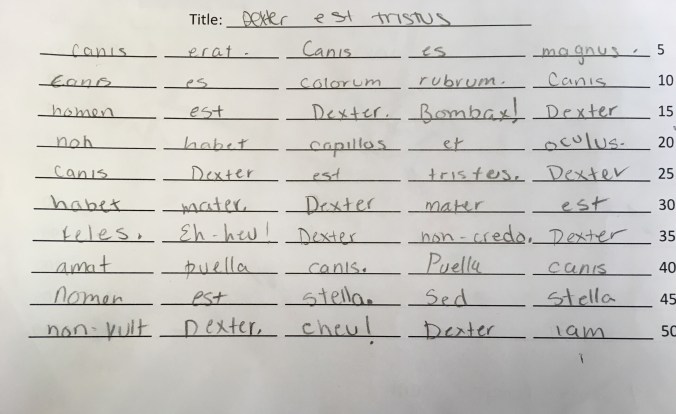 Title: Dexter est tristus
Canis erat. Canis es magnus. 5
Canis es colorum rubrum. Canis 10
nomen est Dexter. Bombax! Dexter 15
non habet capillos et oculus. 20
Canis Dexter est tristes. Dexter 25
habet mater. Dexter mater est 30
feles. Eh-heu! Dexter non-credo. Dexter 35
amat puella canis. Puella canis 40
nomen est Stella. Sed Stella 45
non-vult Dexter. eheu! Dexter iam 50